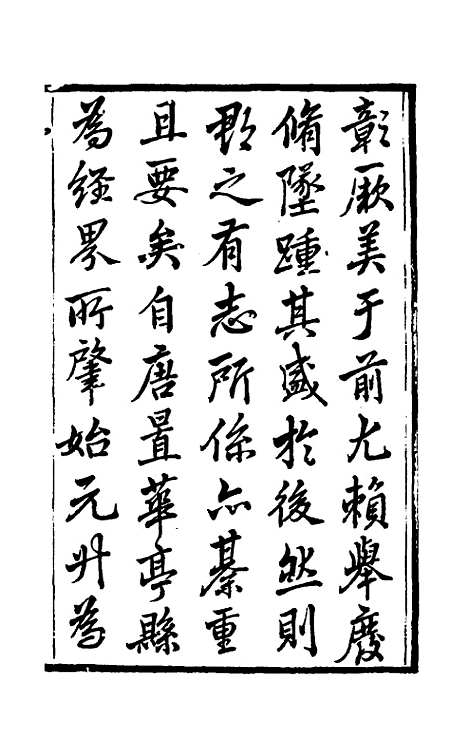 彰厥美于前尤賴舉廢
脩墜踵其盛於後然則
郡之有志所係亦綦重
且要矣自唐置華亭縣
為經界所肇始元升為